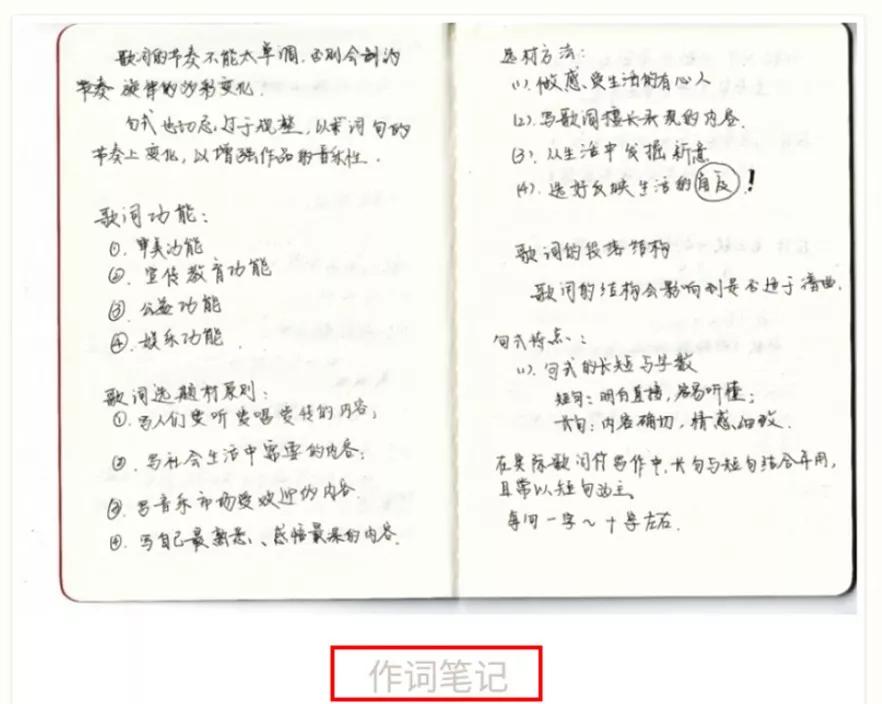 歌词的节奏不能太单调,否则会制约
节奏旋律的 变化.
句式也切忌过于规整,以求词句的
节奏上变化,以增强作品的音乐性.
歌词功能:
①. 审美功能
②. 宣传教育功能
③ 公益功能
④. 娱乐功能.
歌词选题材原则:
①. 写人们爱听爱唱爱传的内容;
②. 写社会生活中需要的内容;
③ 写音乐市场受欢迎的内容
④. 写自己最 、感悟最深的内容.
选材方法:
(1). 做感受生活的有心人
(2). 写歌词擅长表现的内容.
(3). 从生活中发掘新意
(4). 选好反映生活的角度!
歌词的段落结构
歌词的结构会影响到是否适于谱曲.
句式特点:
(1). 句式的长短与字数
短句:明白直接,容易听懂;
长句:内容确切,情感细致.
在实际歌词作写作中,长句与短句结合并用,
且常以短句为主.
每句一字~十字左右.
作词笔记